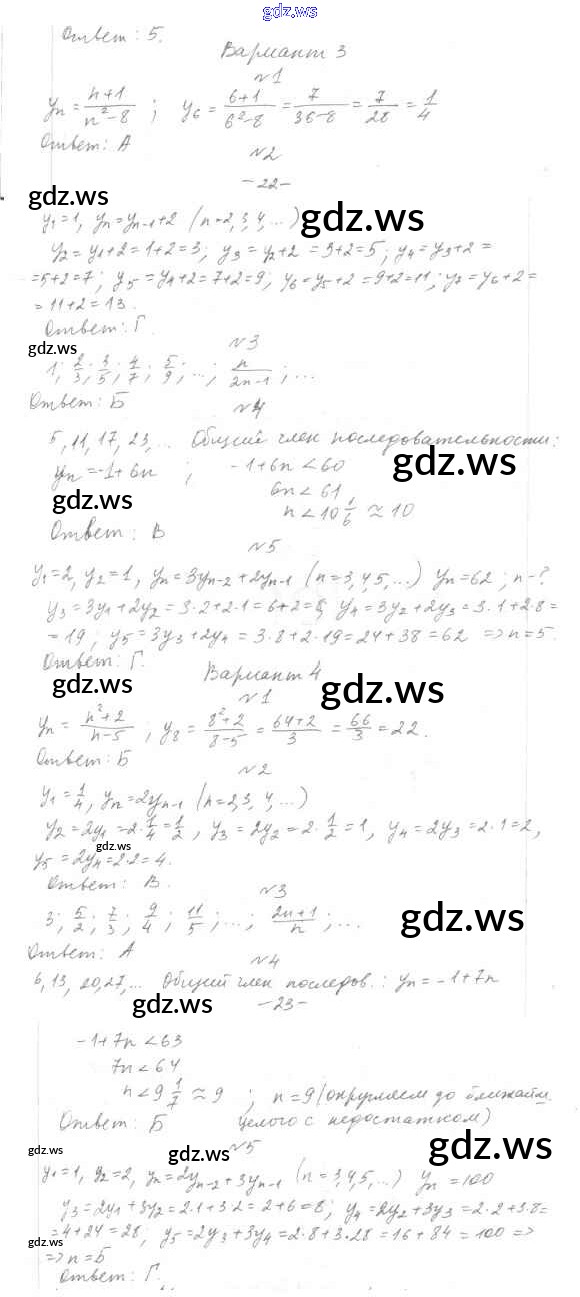 gdz.ws
Ответ: 5.
Вариант 3
№1
yn = n+1/n²-8 ; y6 = 6+1/6²-8 = 7/36-8 = 7/28 = 1/4
Ответ: А
№2
-22-
gdz.ws
gdz.ws
y1=1, yn=yn-1+2 (n=2,3,4,...)
y2=y1+2=1+2=3; y3=y2+2=3+2=5; y4=y3+2=
=5+2=7; y5=y4+2=7+2=9; y6=y5+2=9+2=11; y7=y6+2=
=11+2=13.
Ответ: Г.
gdz.ws
№3
1; 2/3; 3/5; 4/7; 5/9; ...; n/2n-1; ...
Ответ: Б
№4
5, 11, 17, 23, ... Общий член последовательности:
gdz.ws
yn=-1+6n ; -1+6n<60
6n<61
gdz.ws
n<10 1/6 ≈ 10
Ответ: В
№5
y1=2, y2=1, yn=3yn-2+2yn-1 (n=3,4,5,...) yn=62; n-?
y3=3y1+2y2=3·2+2·1=6+2=8; y4=3y2+2y3=3·1+2·8=
=19; y5=3y3+2y4=3·8+2·19=24+38=62 =>n=5.
Ответ: Г.
Вариант 4
gdz.ws
gdz.ws
№1
yn = n²+2/n-5 ; y8 = 8²+2/8-5 = 64+2/3 = 66/3 = 22.
Ответ: Б
№2
y1=1/4, yn=2yn-1 (n=2,3,4,...)
y2=2y1=2·1/4=1/2, y3=2y2=2·1/2=1, y4=2y3=2·1=2,
gdz.ws
y5=2y4=2·2=4.
Ответ: В.
№3
gdz.ws
3; 5/2; 7/3; 9/4; 11/5; ...; 2n+1/n; ...
Ответ: А
№4
6, 13, 20, 27, ... Общий член последов.: yn=-1+7n
gdz.ws
-23-
-1+7n<63
7n<64
n<9 1/7 ≈ 9 ; n=9 (округляем до ближайш
целого с недостатком)
Ответ: Б
gdz.ws
gdz.ws
gdz.ws
№5
y1=1, y2=2, yn=2yn-2+3yn-1 (n=3,4,5,...) yn=100
y3=2y1+3y2=2·1+3·2=2+6=8; y4=2y2+3y3=2·2+3·8=
=4+24=28; y5=2y3+3y4=2·8+3·28=16+84=100 =>
gdz.ws
=>n=5
Ответ: Г.